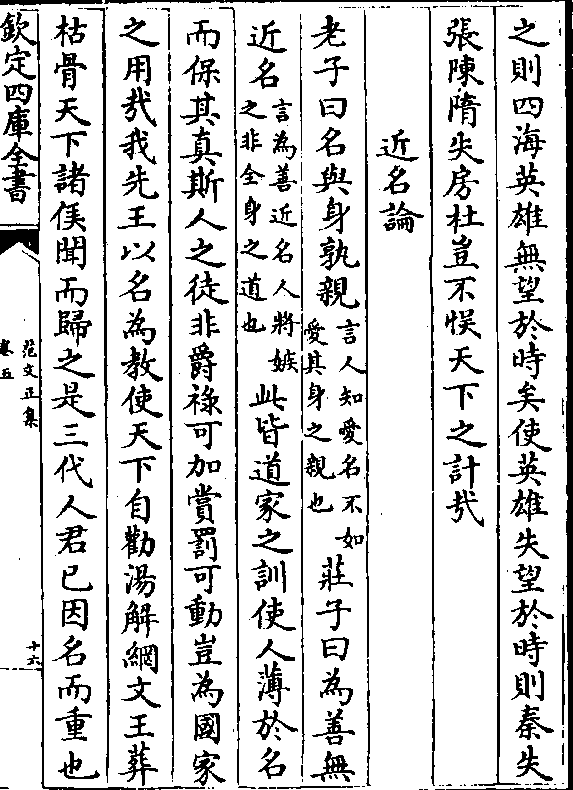 之則四海英雄無望於時矣使英雄失望於時則秦失
張陳隋失房杜豈不悞天下之計㢤
近名論
老子曰名與身孰親言人知愛名不如愛其身之親也莊子曰為善無
近名言為善近名人將嫉之非全身之道也此皆道家之訓使人薄於名
而保其真斯人之徒非爵祿可加賞罰可動豈為國家
之用㢤我先王以名為教使天下自勸湯解網文王葬
枯骨天下諸侯聞而歸之是三代人君已因名而重也
欽定四庫全書
范文正集
卷五
十六